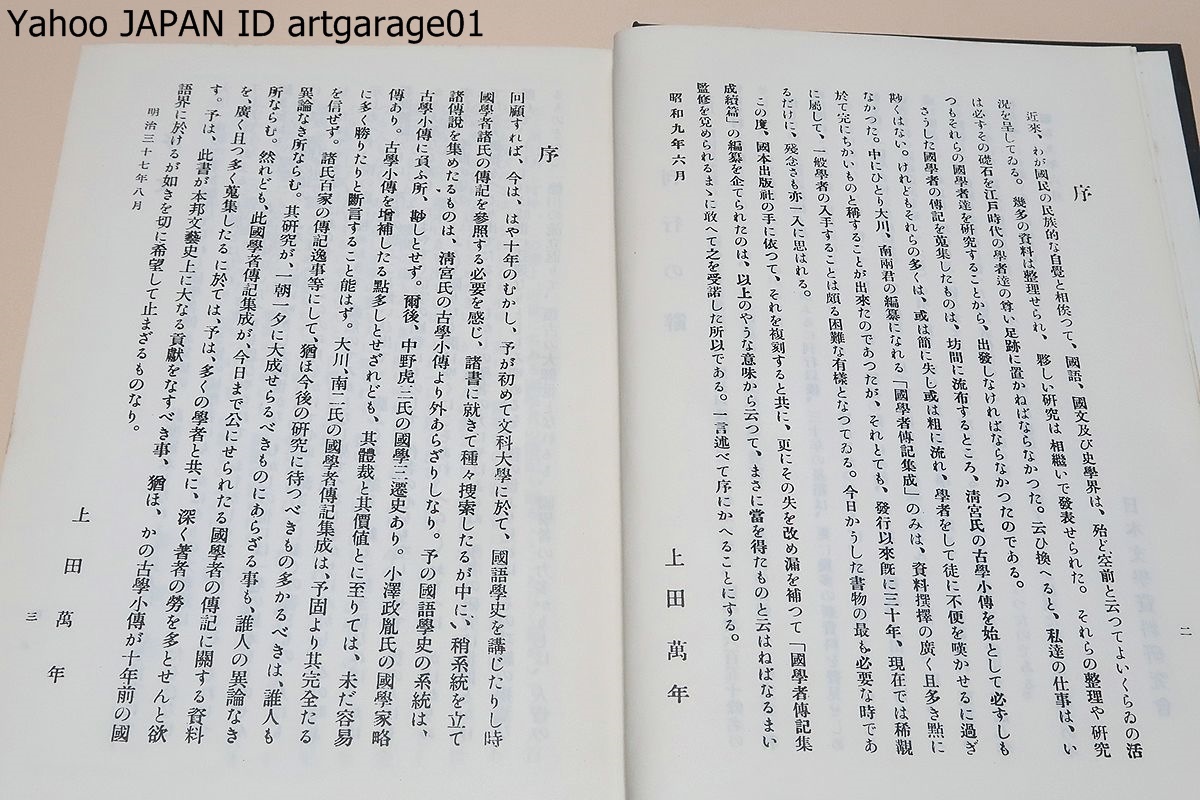 Yahoo JAPAN ID artgarage01
二
序
近來、わが國民の民族的な自覺と相俟つて、國語、國文及び史學界は、殆ど空前と云つてよいくらゐの活
況を呈してゐる。幾多の資料は整理せられ、夥しい研究は相繼いで發表せられた。それらの整理や研究
は必ずその礎石を江戸時代の學者達の尊い足跡に置かねばならなかつた。云ひ換へると、私達の仕事は、い
つもそれらの國學者達を研究することから、出發しなければならなかつたのである。
さうした國學者の傳記を蒐集したものは、坊間に流布するところ、淸宮氏の古學小傳を始として必ずしも
尠くはない。けれどもそれらの多くは、或は簡に失し或は粗に流れ、學者をして徒に不便を嘆かせるに過ぎ
なかつた。中にひとり大川、南兩君の編纂になれる「國學者傳記集成」のみは、資料撰擇の廣く且多き點に
於て完にちかいものと稱することが出來たのであつたが、それとても、發行以來既に三十年、現在では稀覯
に屬して、一般學者の入手することは頗る困難な有樣となつてゐる。今日かうした書物の最も必要な時であ
るだけに、殘念さも亦一入に思はれる。
この度、國本出版社の手に依つて、それを複刻すると共に、更にその失を改め漏を補つて「國學者傳記集
成續篇」の編纂を企てられたのは、以上のやうな意味から云つて、まさに當を得たものと云はねばなるまい
監修を覓められるまゝに敢へて之を受諾した所以である。一言述べて序にかへることにする。
昭和九年六月
上田萬年
序
回顧すれば、今は、はや十年のむかし、予が初めて文科大學に於て、國語學史を講じたりし時
國學者諸氏の傳記を參照する必要を感じ、諸書に就きて種々搜索したるが中に、稍系統を立て
諸傳說を集めたるものは、淸宮氏の古學小傳より外あらざりしなり。予の國語學史の系統は、
古學小傳に負ふ所、尠しとせず。爾後、中野虎三氏の國學三遷史あり。小澤政胤氏の國學家略
傳あり。古學小傳を增補したる點多しとせざれども、其體裁と其價値とに至りては、未だ容易
に多く勝りたりと斷言すること能はず。大川、南二氏の國學者傳記集成は、予固より其完全たる
を信ぜず。諸氏百家の傳記逸事等にして、猶ほ今後の研究に待つべきもの多かるべきは、誰人も
異論なき所ならむ。其研究が、一朝一夕に大成せらるべきものにあらざる事も、誰人の異論なき
所ならむ。然れども、此國學者傳記集成が、今日まで公にせられたる國學者の傳記に關する資料
を、廣く且つ多く蒐集したるに於ては、予は、多くの學者と共に、深く著者の勞を多とせんと欲
す。予は、此書が本邦文藝史上に大なる貢獻をなすべき事、猶ほ、かの古學小傳が十年前の國
語界に於けるが如きを切に希望して止まざるものなり。
明治三十七年八月
上田萬年
三